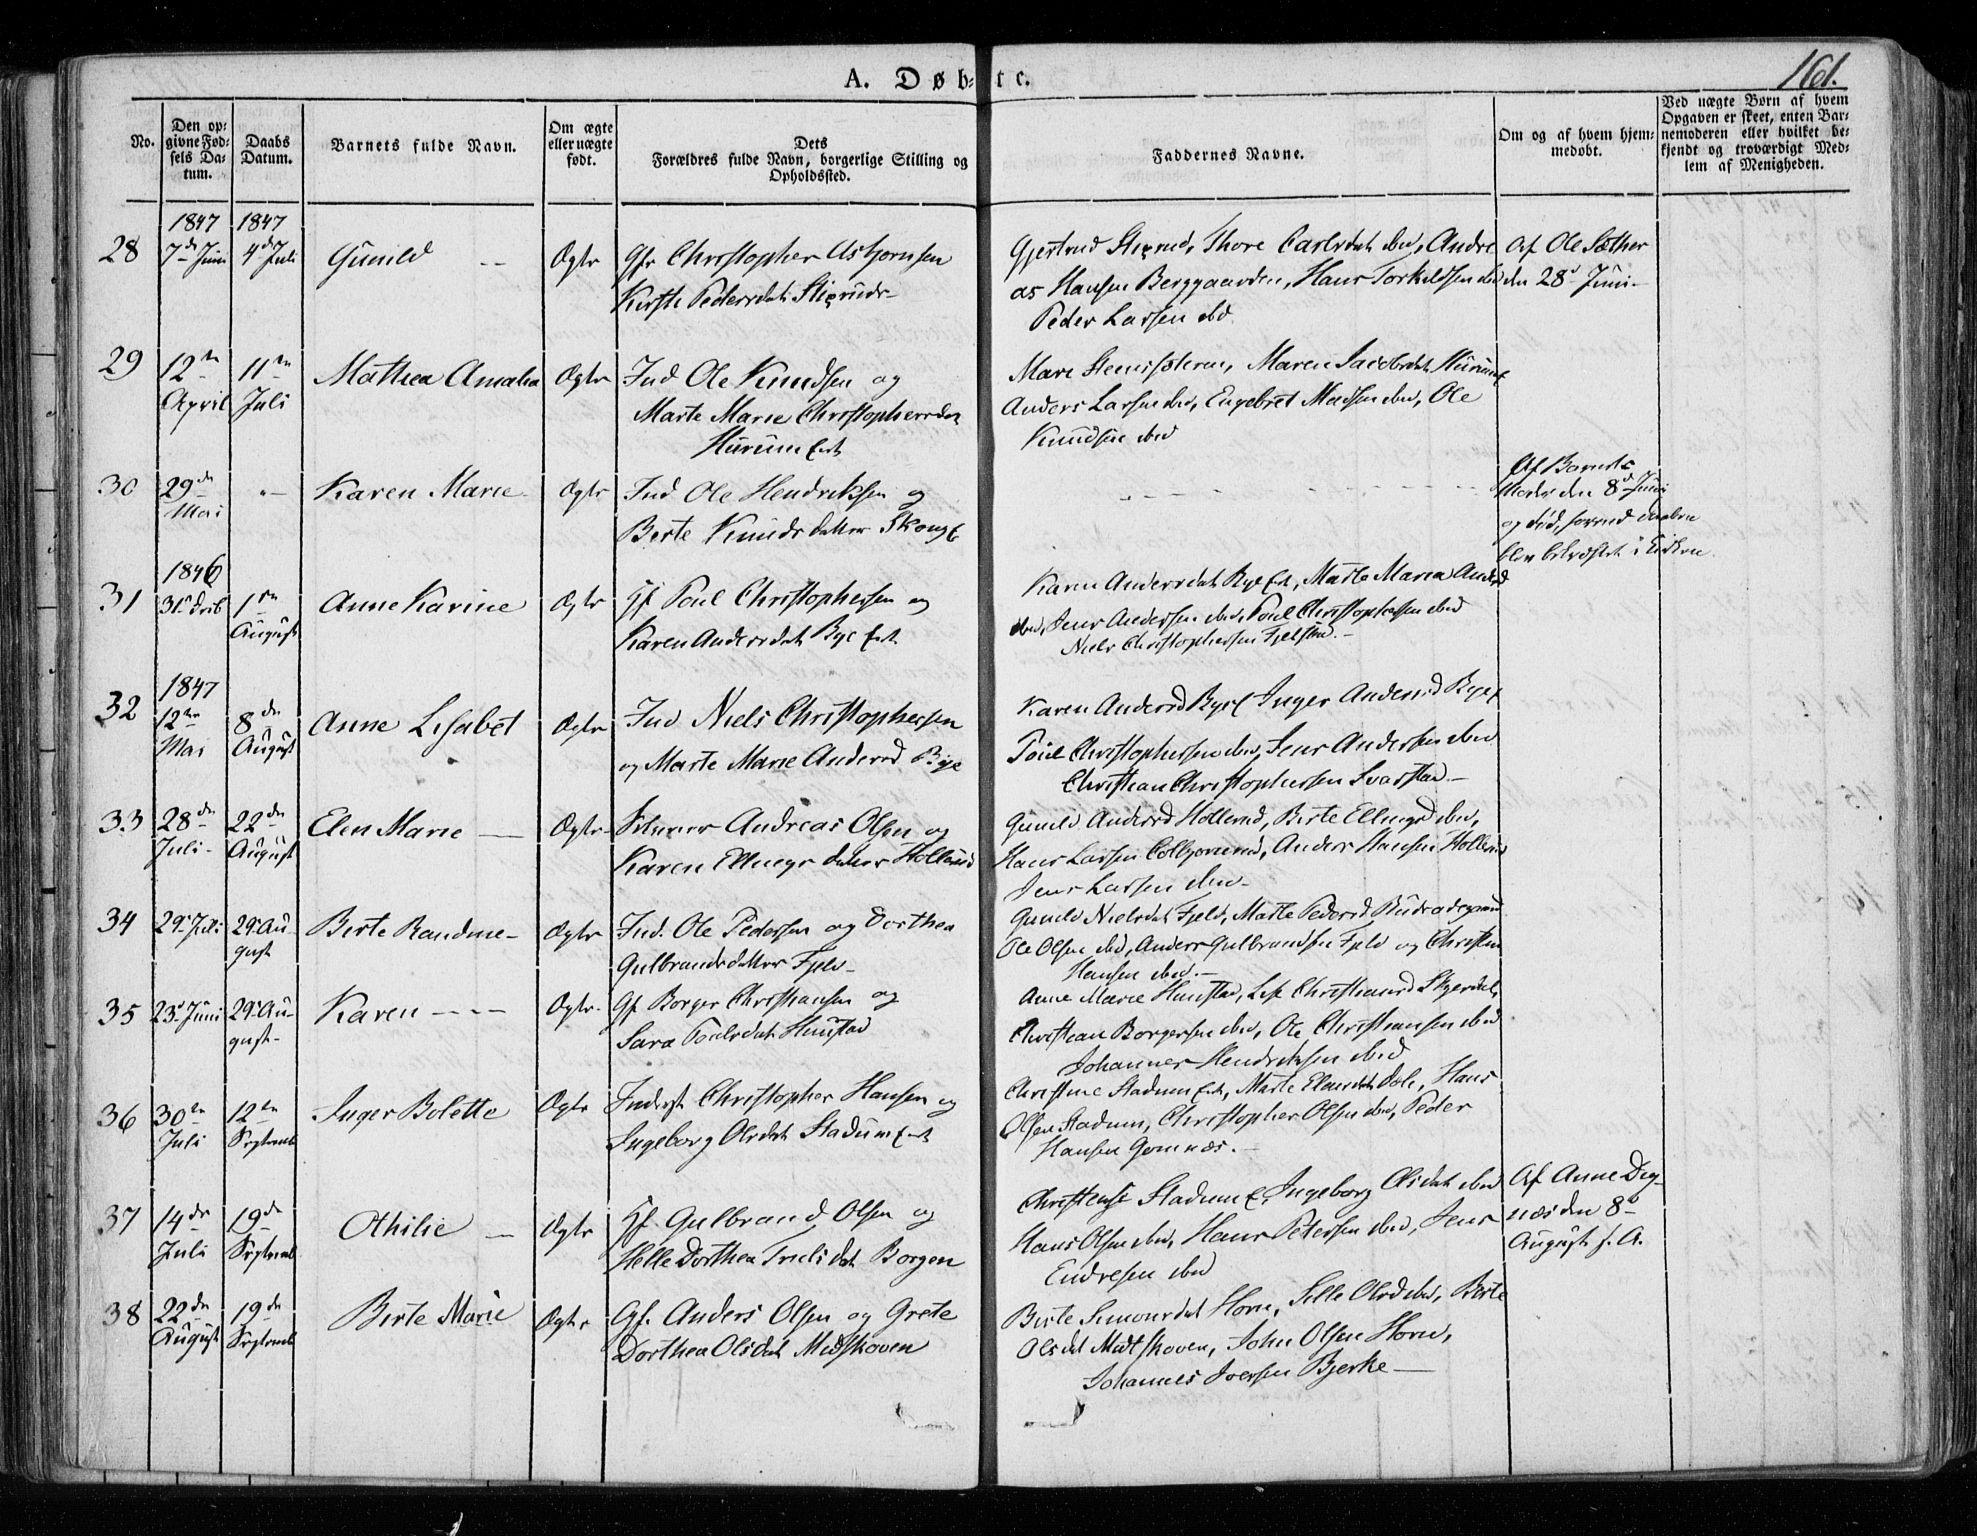 A. Døb- te.
161.
No.
Den op-
givne Fød-
sels Da-
tum.
Daabs
Datum.
Barnets fulde Navn.
Om ægte
eller uægte
født.
Dets
Forældres fulde Navn, borgerlige Stilling og
Opholdssted.
Faddernes Navne.
Om og af hvem hjem-
medøbt.
Ved uægte Børn af hvem
Opgaven er skeet, enten Bar-
nemoderen eller hvilket be-
kjendt og troværdigt Med-
lem af Menigheden.
1847 1847
28 7de Juni 4de Juli Gunild Ægte Gfr Christopher Asbjørnsen
Kirsti Pedersdat
Thore Carlsdat ibd, Andre
as Hansen Berggaarden, Hans Torkildsen ibd
Peder Larsen ibd
Af Ole Sæther
den 28de Juni
29 12te April 11te Juli Mathea Amalia Ægte Ind Ole Knudsen og
Marte Marie Christophersdat
Hurum
Maren Jacobsdat Hurum
Anders Larsen ibd, Engebret Madsen ibd, Ole
Knudsen ibd
30 29de Mai "– Karen Marie Ægte Ind Ole Hendriksen og
Berte Knudsdatter
Af Barnets
Moder den 8de Juni
og død, forend daaben
blev bekræftet i Kirken
1846
31 31te Decb 1ste August Anne Karine Ægte Gf Poul Christophersen og
Karen Andersdat Bye
Karen Andersdat Bye, Marte Maria Andersd
ibd, Jens Andersen ibd, Poul Christophersen ibd
Niels Christophersen Fjelstad
1847
32 12te Mai 8de August Anne Lisabet Ægte Ind Niels Christophersen
og Marte Marie Andersd Bye
Karen Andersd Bye Inger Andersd Bye
Poul Christophersen ibd, Jens Andersen ibd
Christian Christophersen Svarstad
33 28de Juli 22de August Elen Marie Ægte Andreas Olsen og
Karen Ellingsdatter Hollerud
Gunild Andersd Hollerud, Berte Ellingsd ibd,
Hans Larsen Anders Hansen Hollerud
Jens Larsen ibd
34 29 Juli 29 August Berte Randine Ægte Ind. Ole Pedersen og Dorthea
Gulbrandsdatter Fjeld
Gunild Nielsdat Fjeld, Marte Pedersd
Ole Olsen ibd, Anders Gulbrandsen Fjeld og Christian
Hansen ibd.
35 23 Juni 29 August Karen Ægte Gf Borger Christiansen og
Sara Poulsdat Hunstad
Anne Marie Hunstad, Lise Christiansd Skjerdal,
Christian Borgersen ibd, Ole Christiansen ibd
Johannes Hendriksen ibd
36 30te Juli 12te Septemb Inger Bolette Ægte Inderst Christopher Hansen og
Ingeborg Olsdat Stadum
Christine Stadum Hans
Olsen Stadum, Christopher Olsen ibd, Peder
Hansen Gomnæs.
37 14de Juli 19de Septemb Othilie Ægte Gf Gulbrand Olsen og
Helle Dorthea Borgen
Stadum Ingeborg Olsdat ibd
Hans Olsen ibd, Hans Petersen ibd, Jens
Endresen ibd
Af Anne Deg-
næs den 8de
August f. A.
38 22de August 19de Septemb Berte Marie Ægte Gf. Anders Olsen og Grete
Dorthea Olsdat Midskoven
Berte Simonsdat Horn, Sille Olsd ibd, Berte
Olsdat Midtskoven, John Olsen Horn,
Johannes Iversen Bjerke